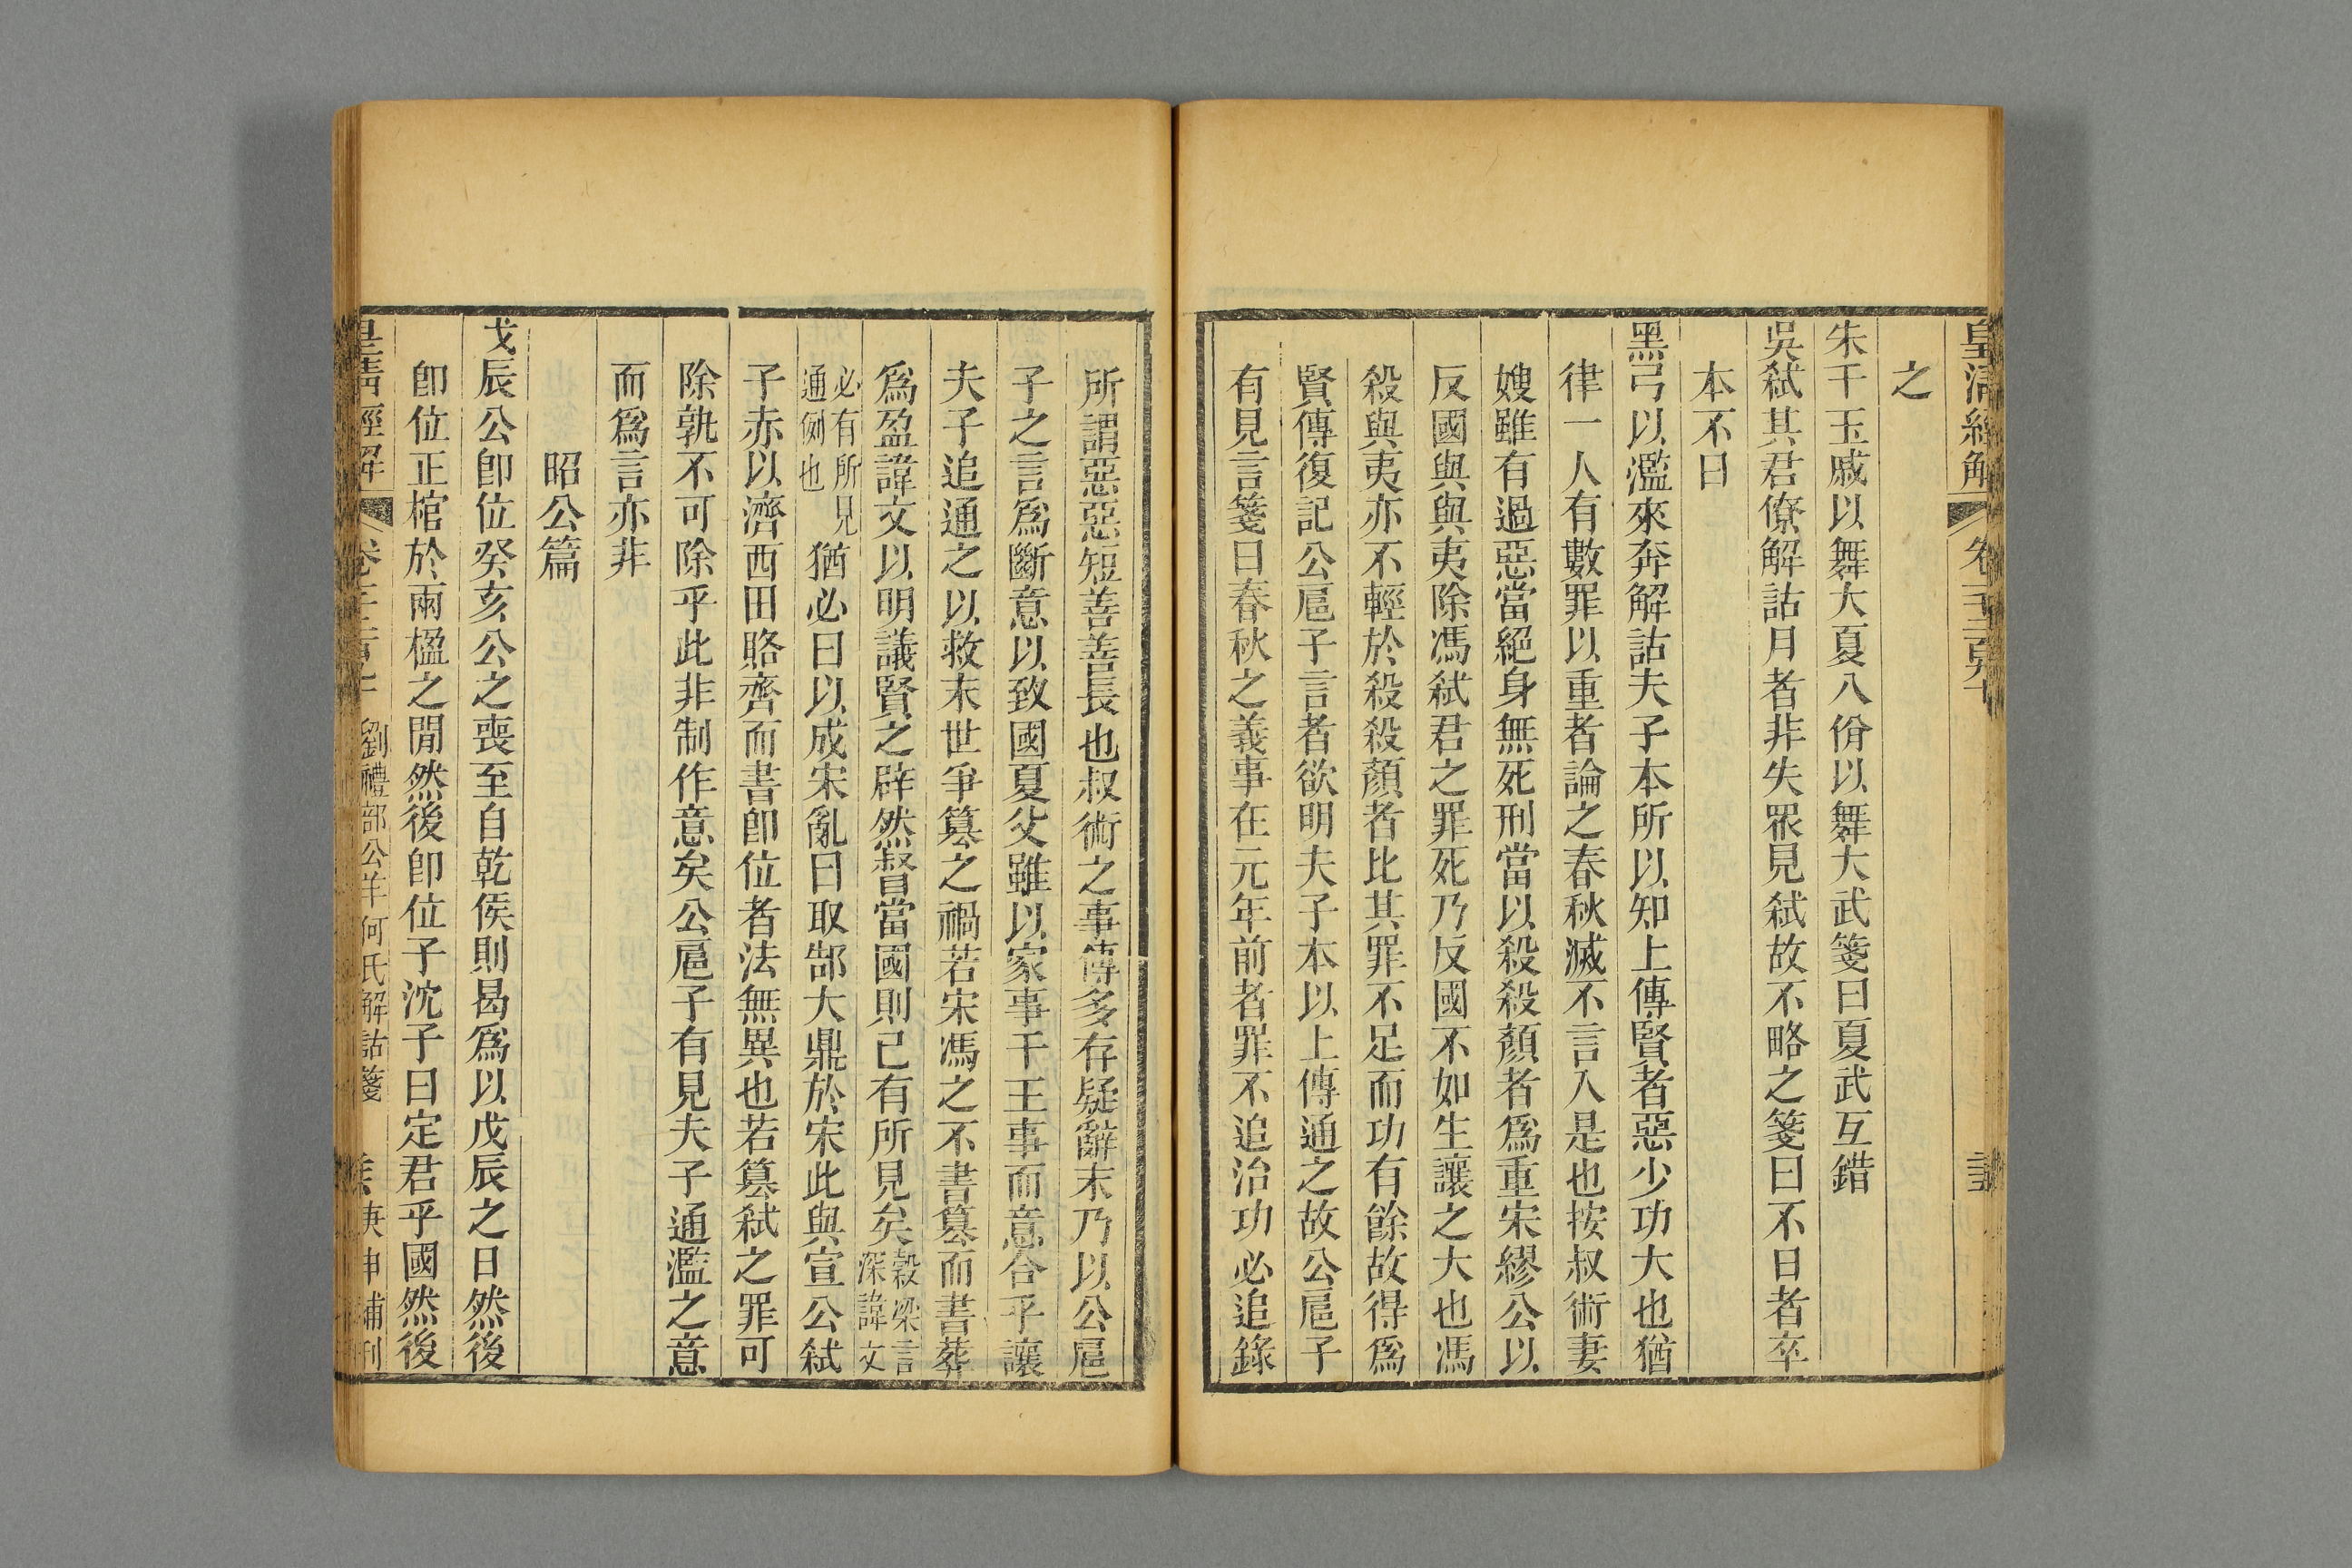 皇清經解
之
朱干玉戚以舞大夏八佾以舞大武箋曰夏武互錯
吳弑其君僚解詁月者非失眾見弑故不略之箋曰不日者卒
本不日
黑弓以濫來奔解詁夫子本所以知上傳賢者惡少功大也猶
律一人有數罪以重者論之春秋滅不言入是也按叔術妻
嫂雖有過惡當絕身無死刑當以殺殺顏者爲重宋繆公以
反國與與夷除馮弑君之罪死乃反國不如生讓之大也馮
殺與夷亦不輕於殺殺顏者比其罪不足而功有餘故得爲
賢傳復記公扈子言者欲明夫子本以上傳通之故公扈子
有見言箋曰春秋之義事在元年前者罪不追治功必追錄
所謂惡惡短善善長也叔術之事傳多存疑辭末乃以公扈
子之言爲斷意以致國夏父雖以家事干王事而意合乎讓
夫子追通之以救末世爭篡之禍若宋馮之不書篡而書葬
爲盈諱文以明議賢之辟然督當國則已有所見矣穀梁言深諱文
必有所見通例也猶必曰以成宋亂曰取郜大鼎於宋此與宣公弑
子赤以濟西田賂齊而書卽位者法無異也若篡弑之罪可
除孰不可除乎此非制作意矣公扈子有見夫子通濫之意
而爲言亦非
昭公篇
戊辰公卽位癸亥公之喪至自乾侯則曷爲以戊辰之日然後
卽位正棺於兩楹之閒然後卽位子沈子曰定君乎國然後
皇清經解 劉禮部公羊何氏解詁箋 庚申補刊